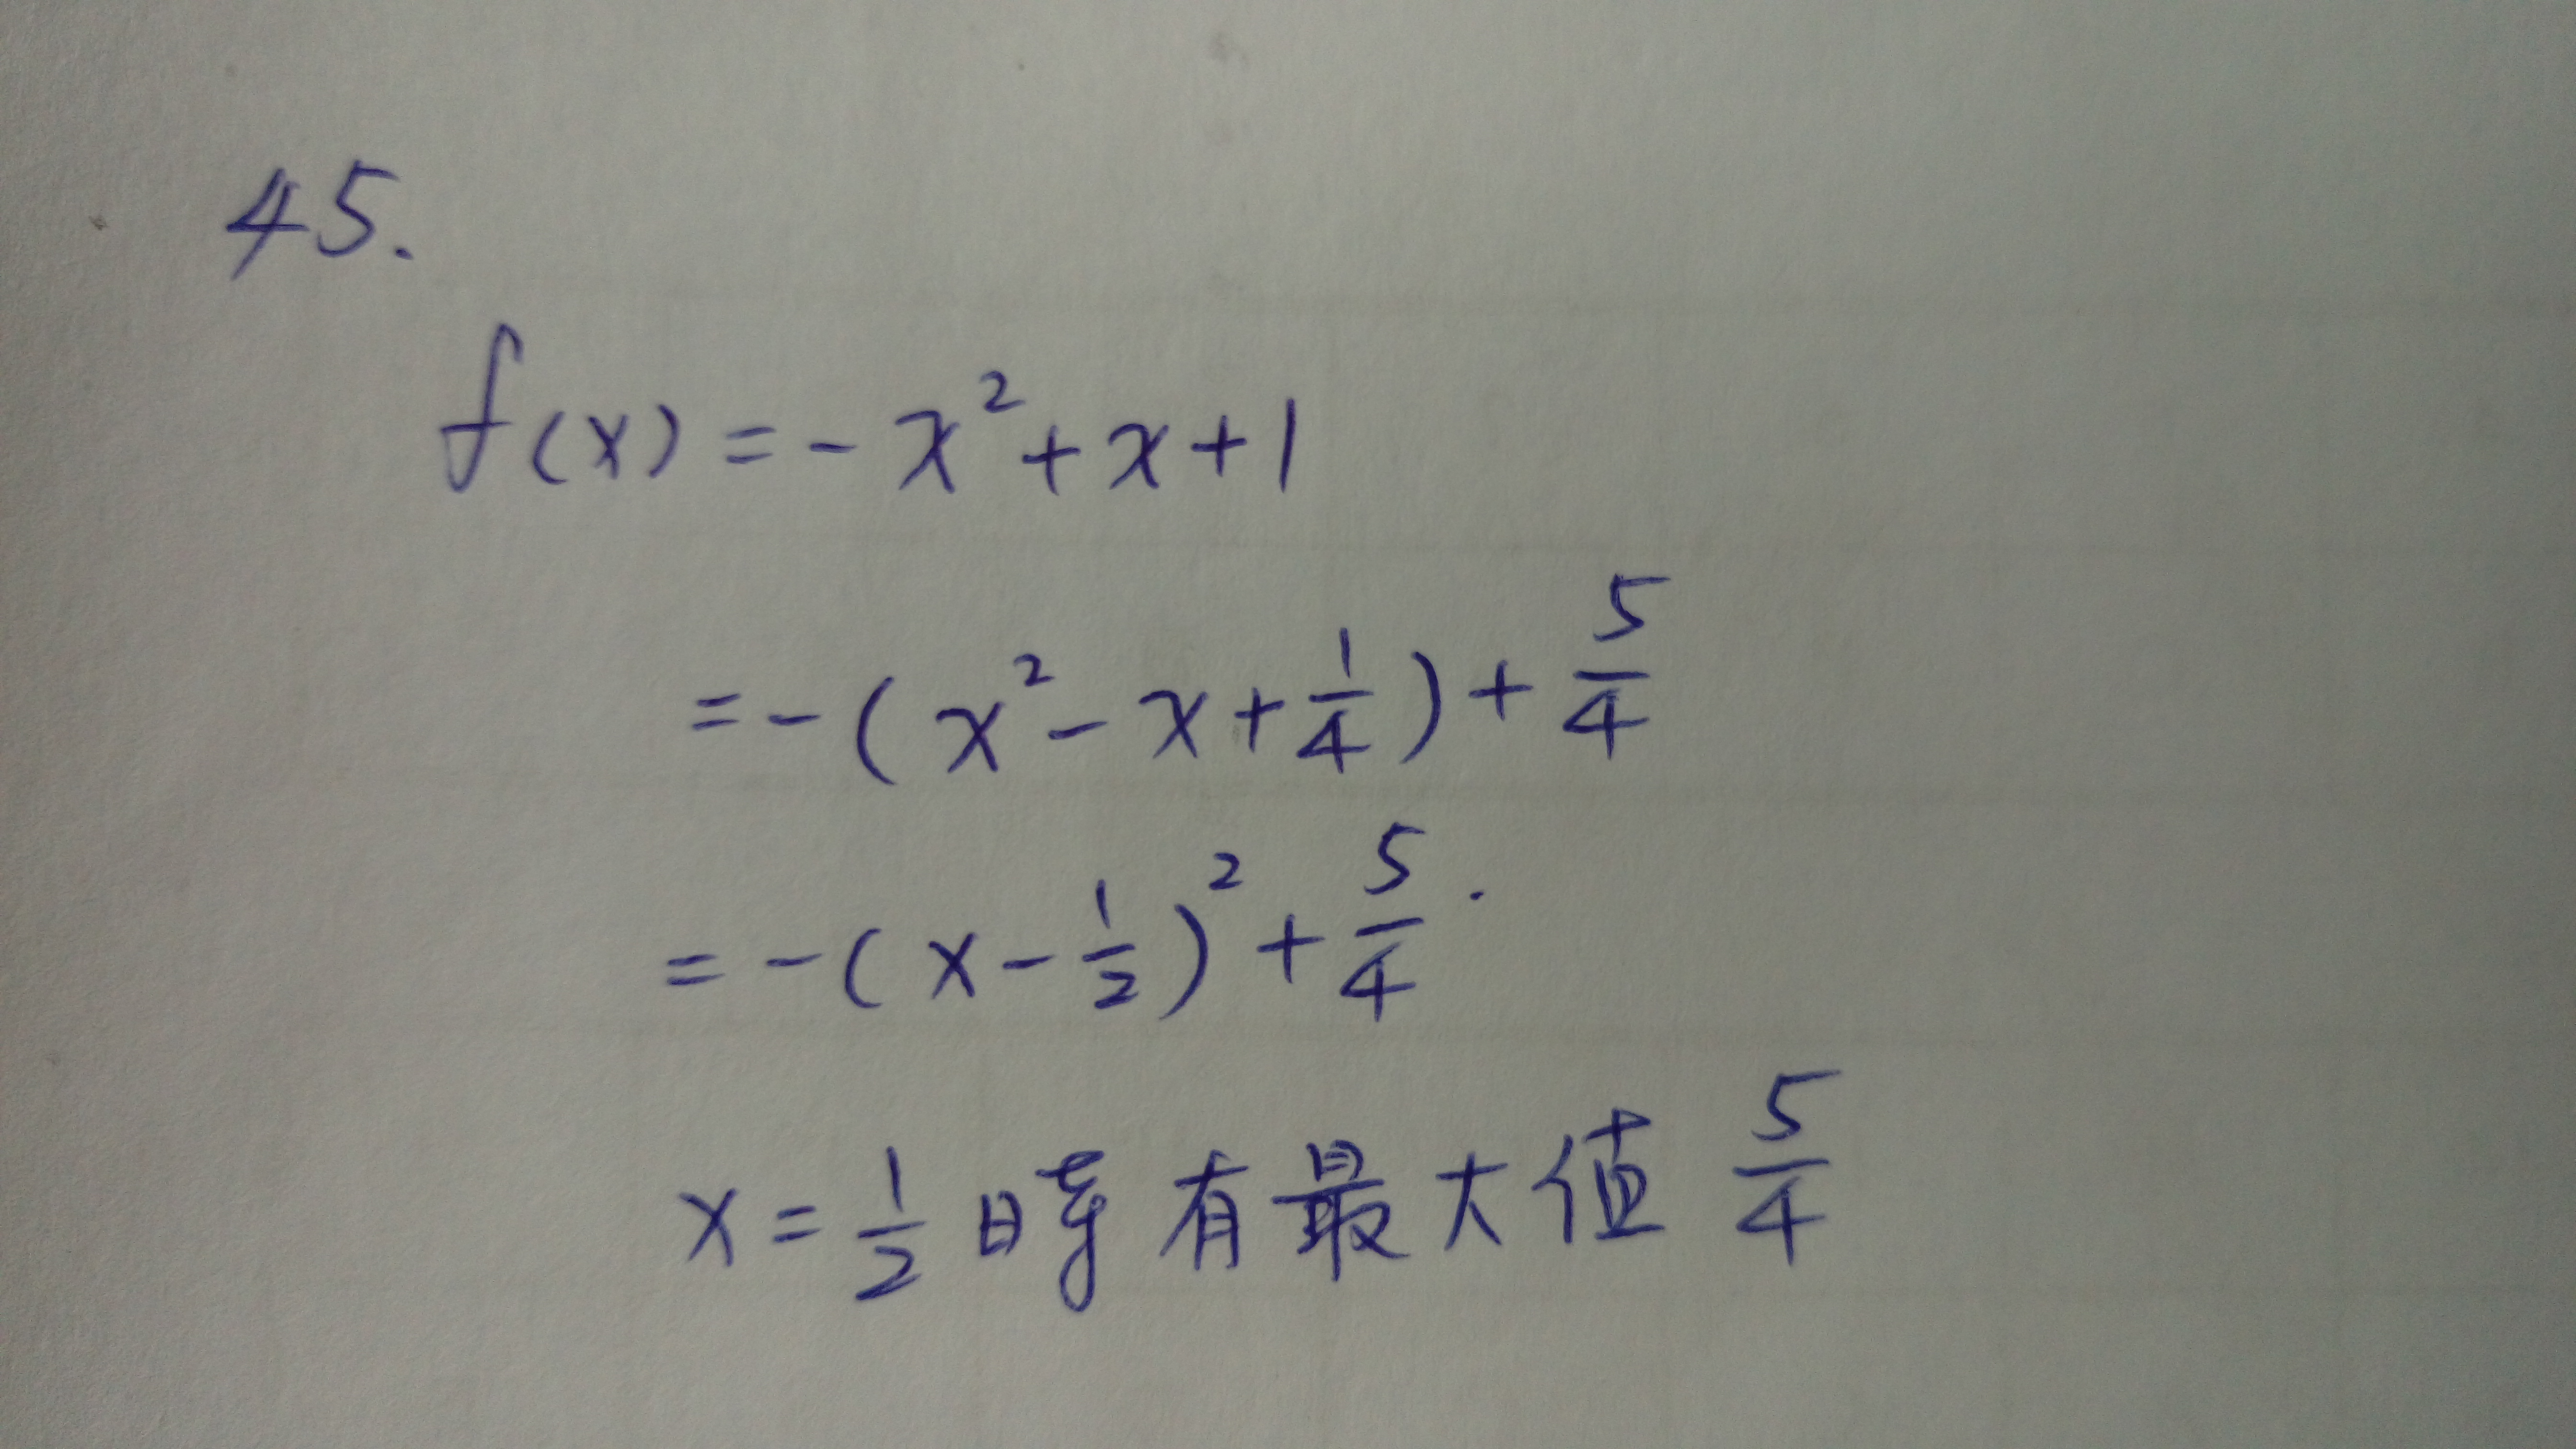 45.
f(x) = -x² + x + 1
= -(x² - x + 1/4) + 5/4
= -(x - 1/2)² + 5/4.
x = 1/2 時有最大值 5/4